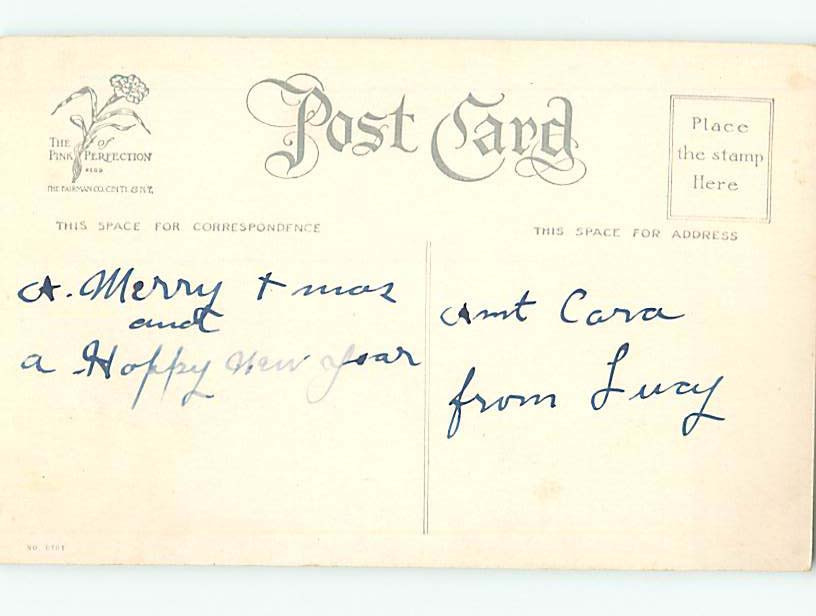 Post Card
THE of
PINK PERFECTION
THE FAIRMAN CO. CIN'TI. & N.Y.
Place
the stamp
Here
THIS SPACE FOR CORRESPONDENCE
THIS SPACE FOR ADDRESS
A. Merry Xmas
and
a Happy New Year
Aunt Cora
from Lucy
NO.